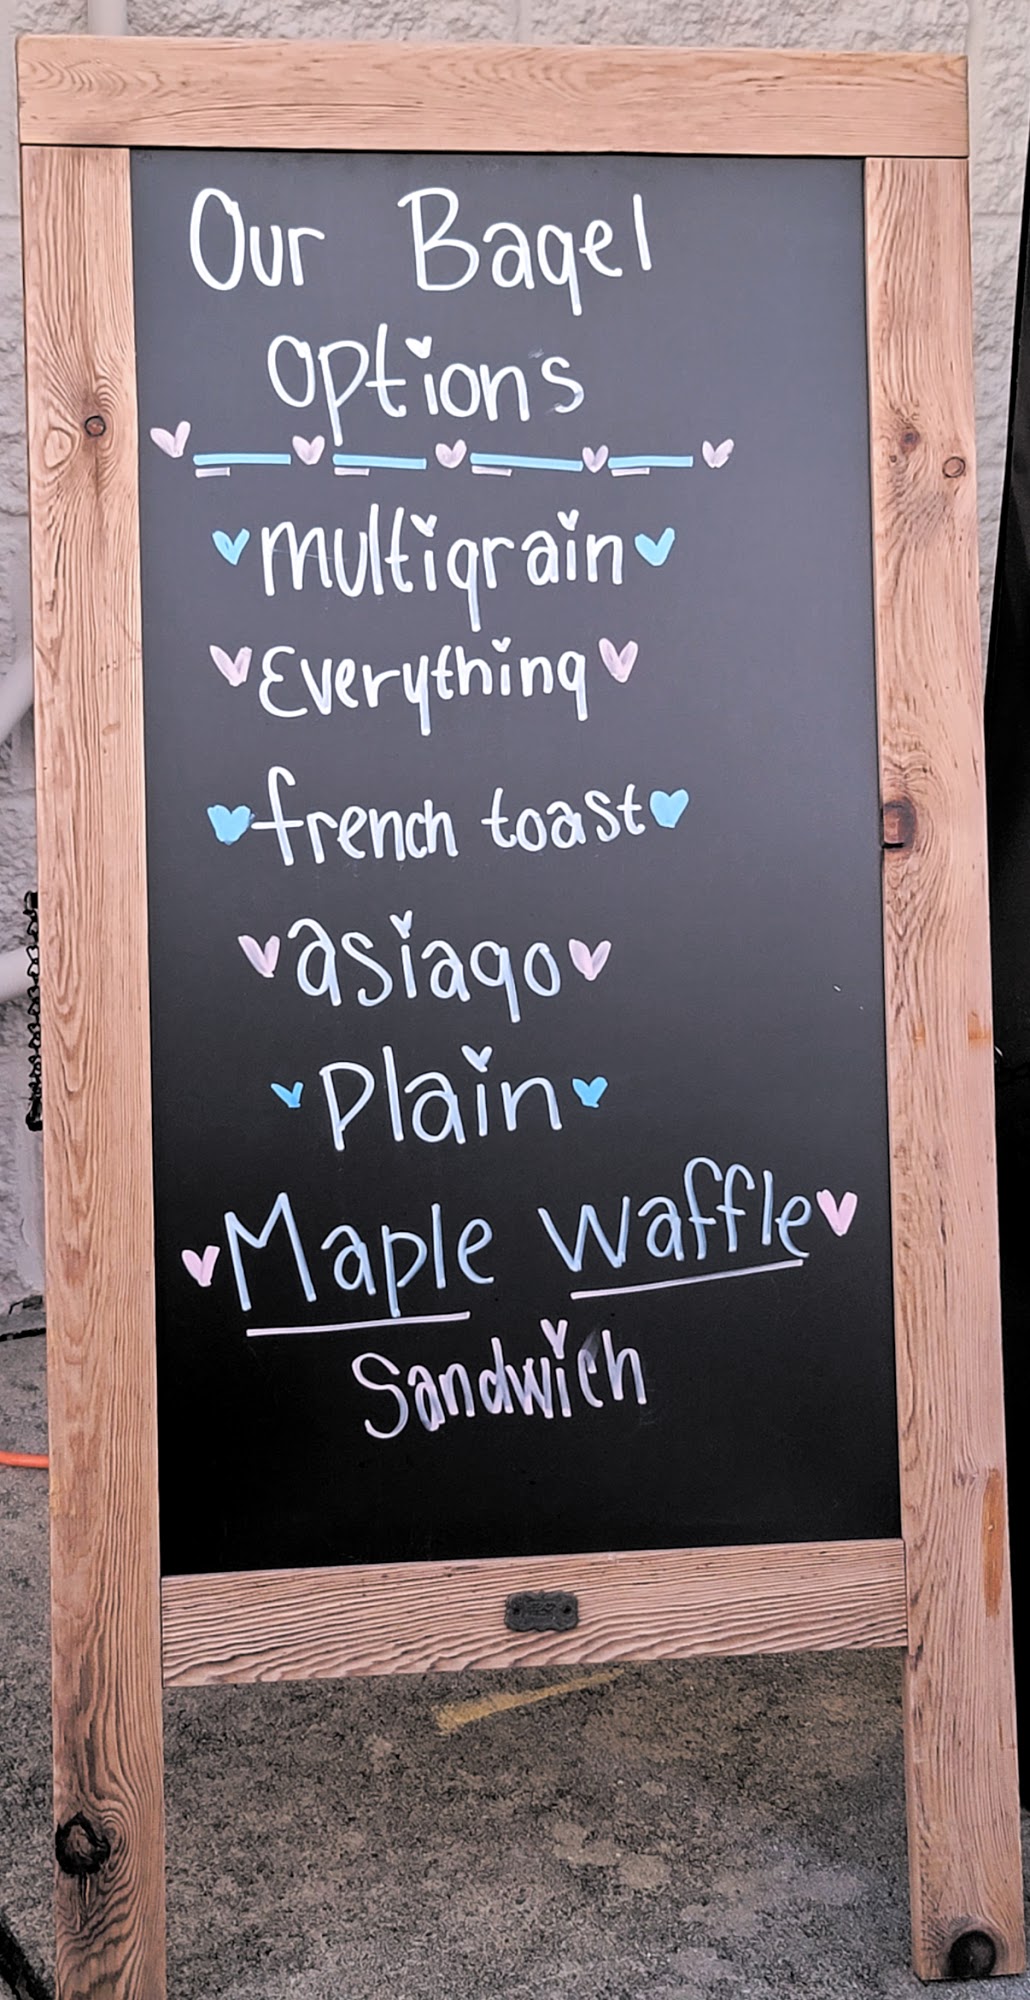 Our Bagel
Options
multigrain
Everything
french toast
asiago
Plain
Maple Waffle
Sandwich